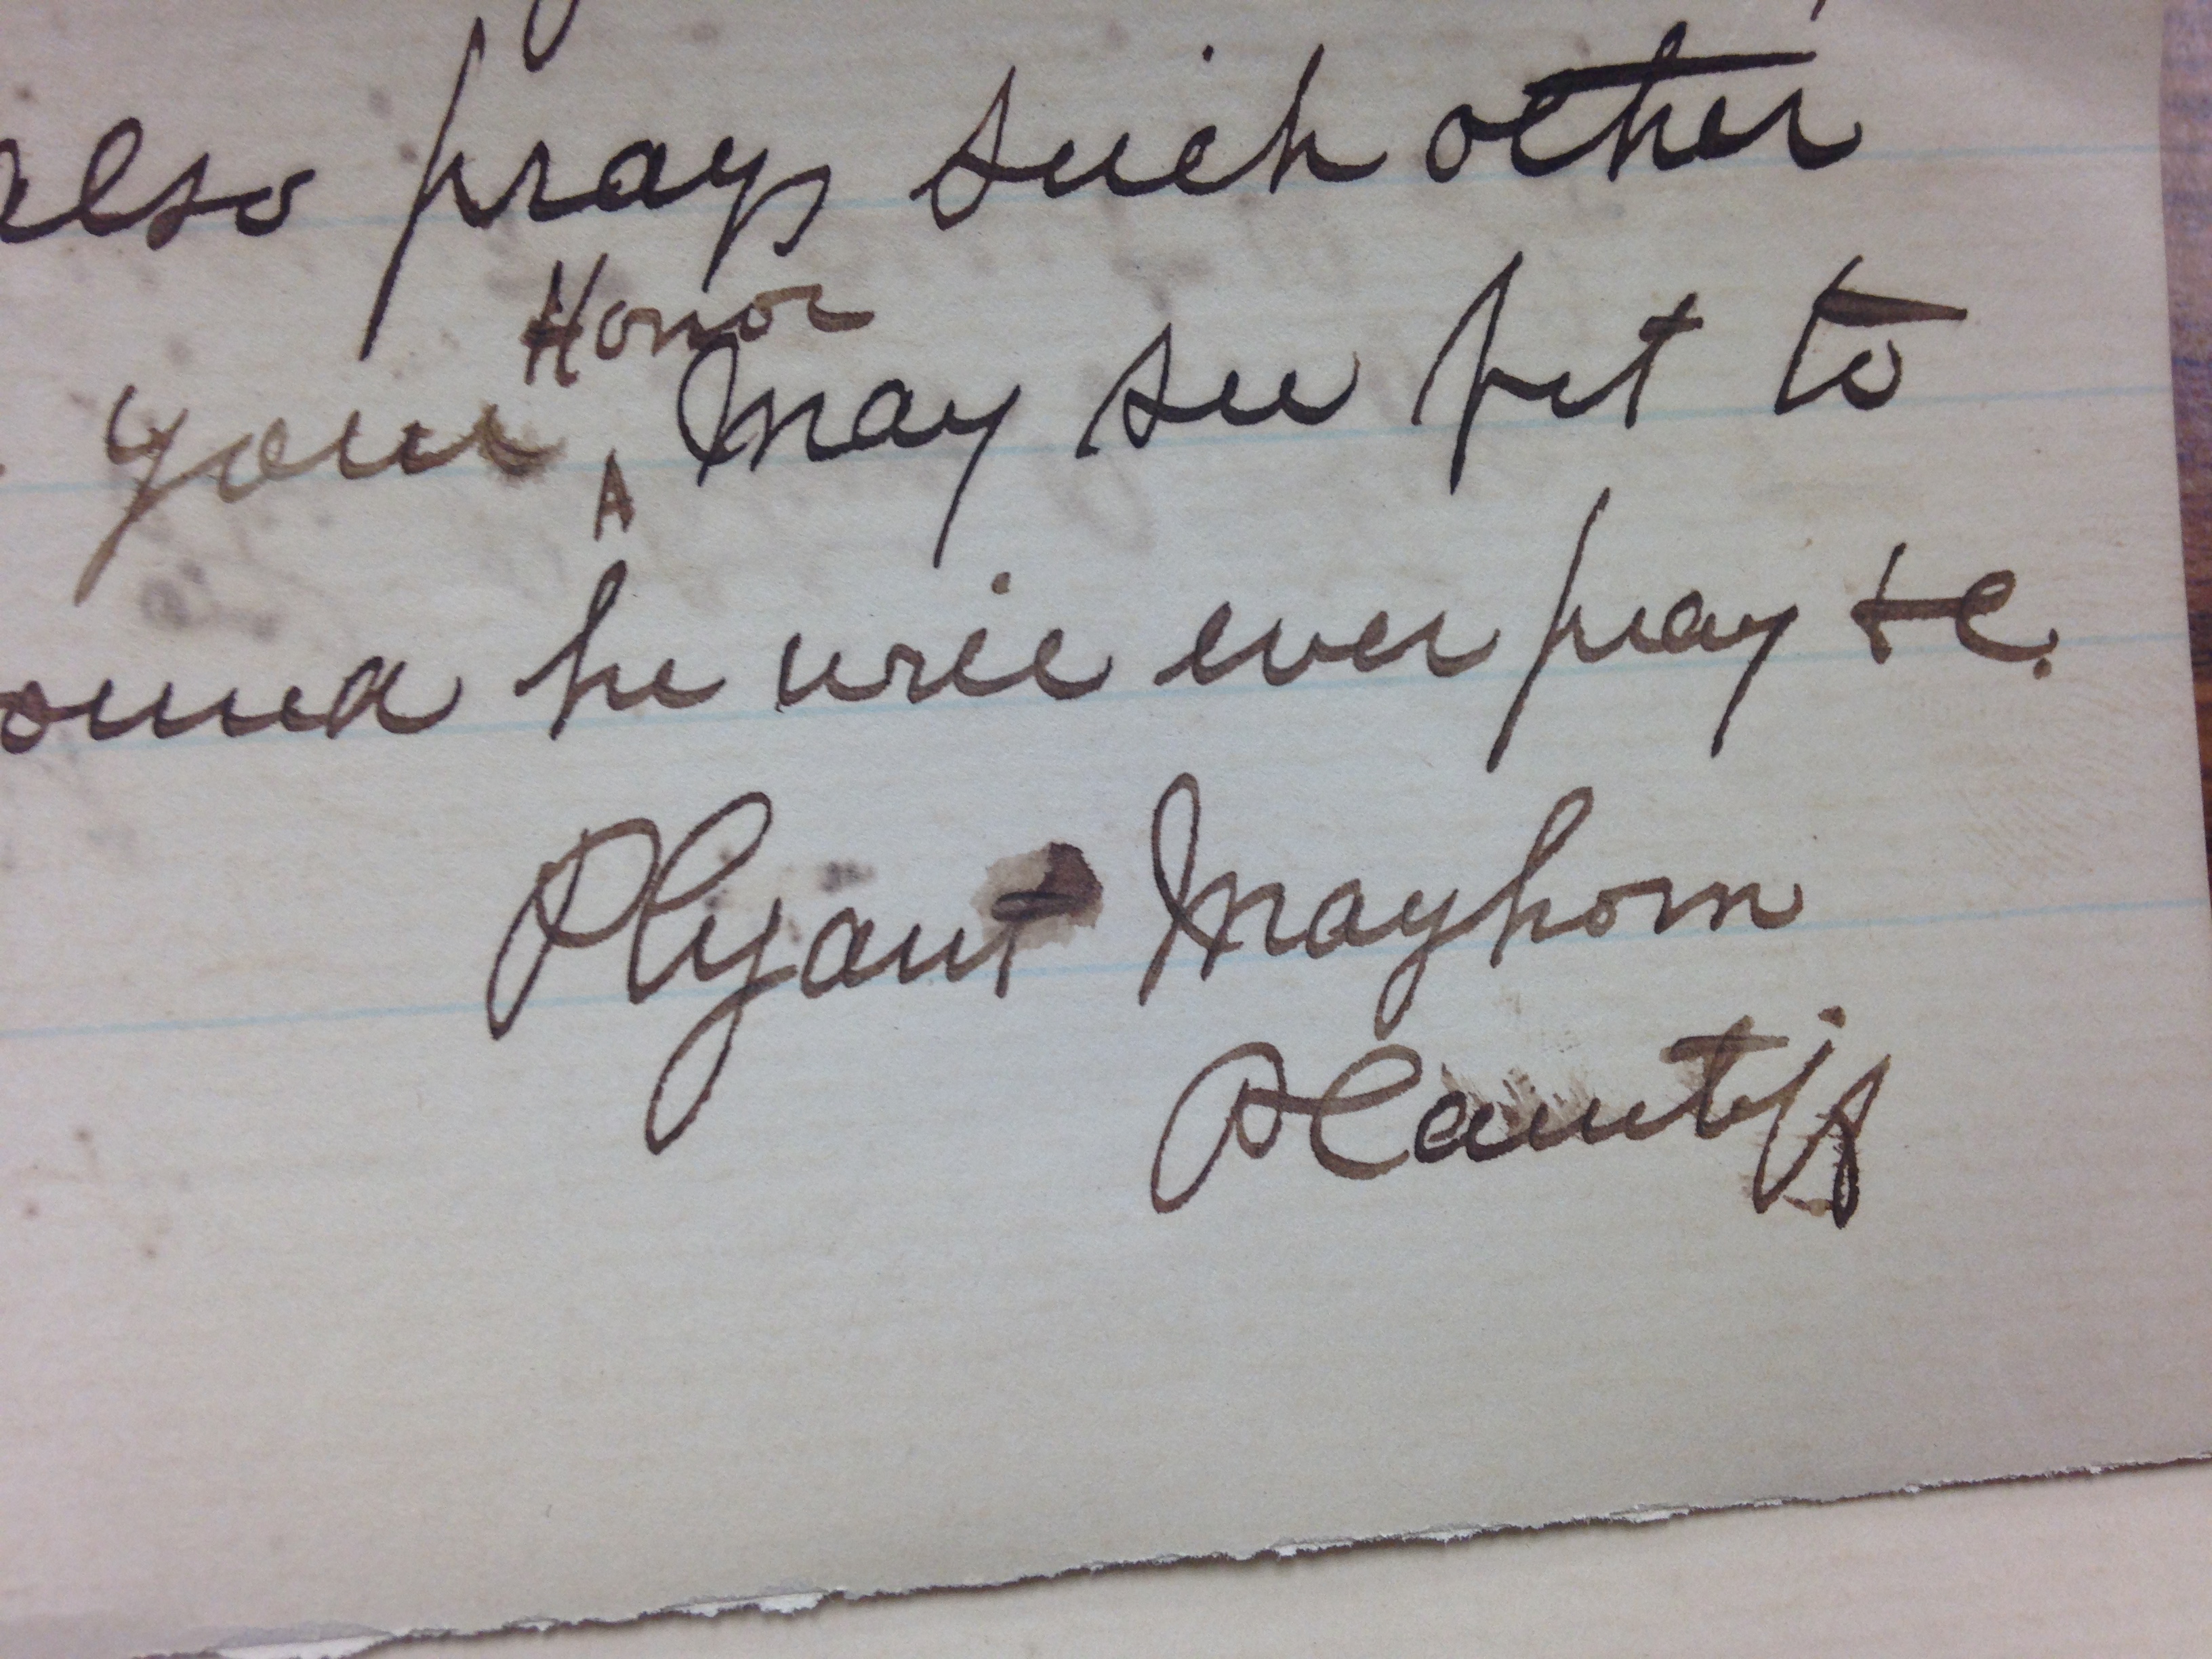 also prays such other
your ^Honor may see fit to
he will ever pray &c.
Plyant Mayhorn
Plaintiff